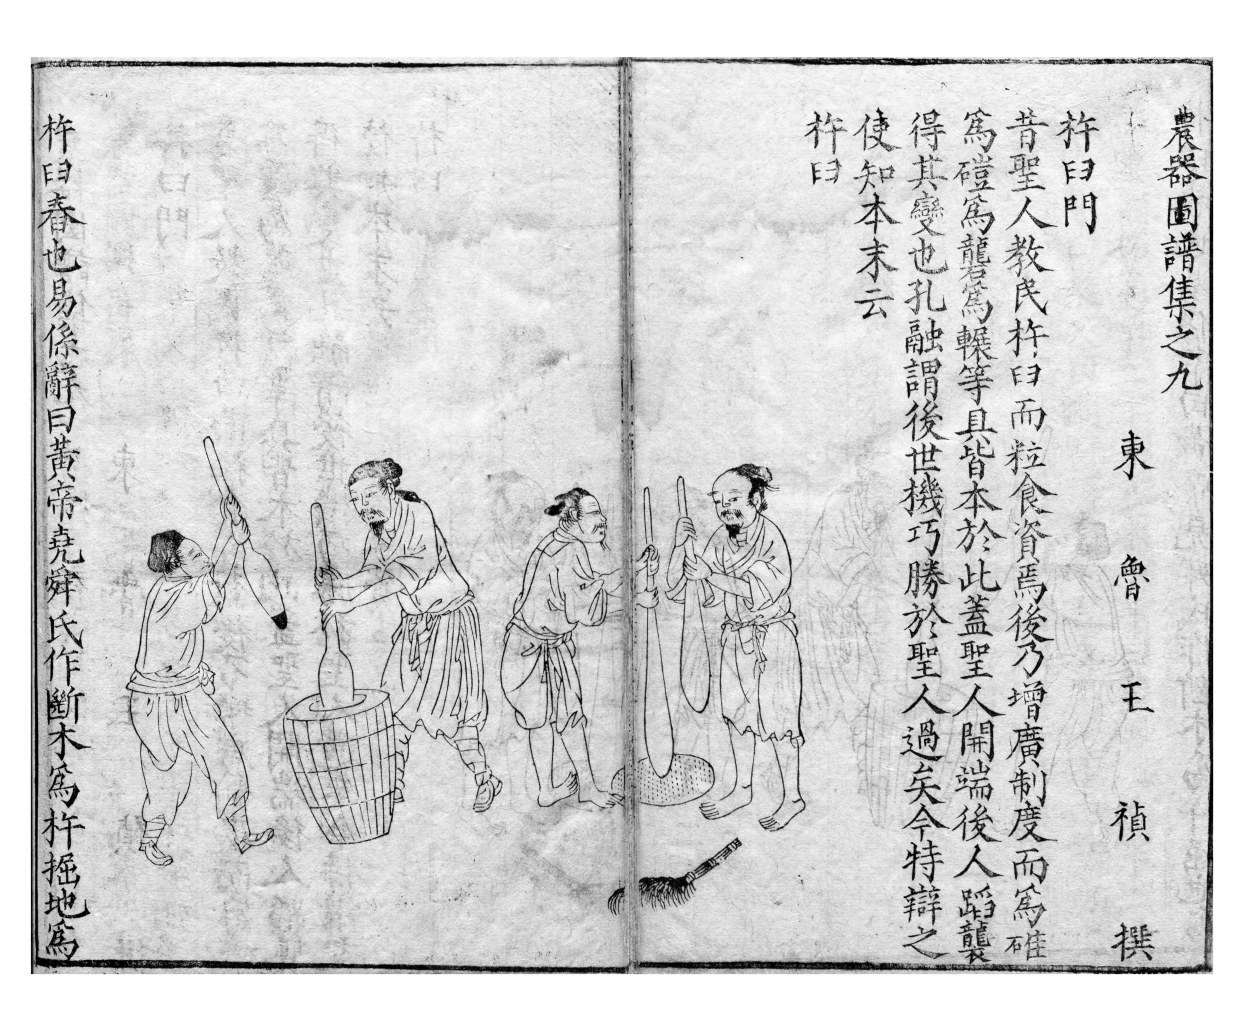 農器圖譜集之九
東魯王禎撰
杵臼門
昔聖人教民杵臼而粒食資焉後乃增廣制度而爲碓
爲磑爲礱爲輾等具皆本於此蓋聖人開端後人蹈襲
得其變也孔融謂後世機巧勝於聖人過矣今特辯之
使知本末云
杵臼
杵臼舂也易係辭曰黃帝堯舜氏作斷木爲杵掘地爲